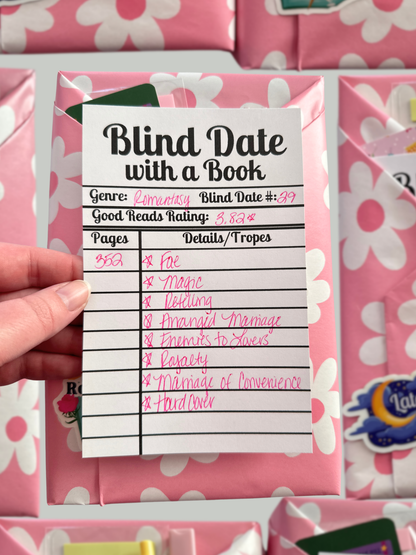 Blind Date
with a Book
Genre: Romantasy Blind Date #: 29
Good Reads Rating: 3.82☆
Pages Details/Tropes
352 ☆ Fae
☆ Magic
☆ Retelling
☆ Arranged Marriage
☆ Enemies to Lovers
☆ Royalty
☆ Marriage of Convenience
☆ Hard Cover